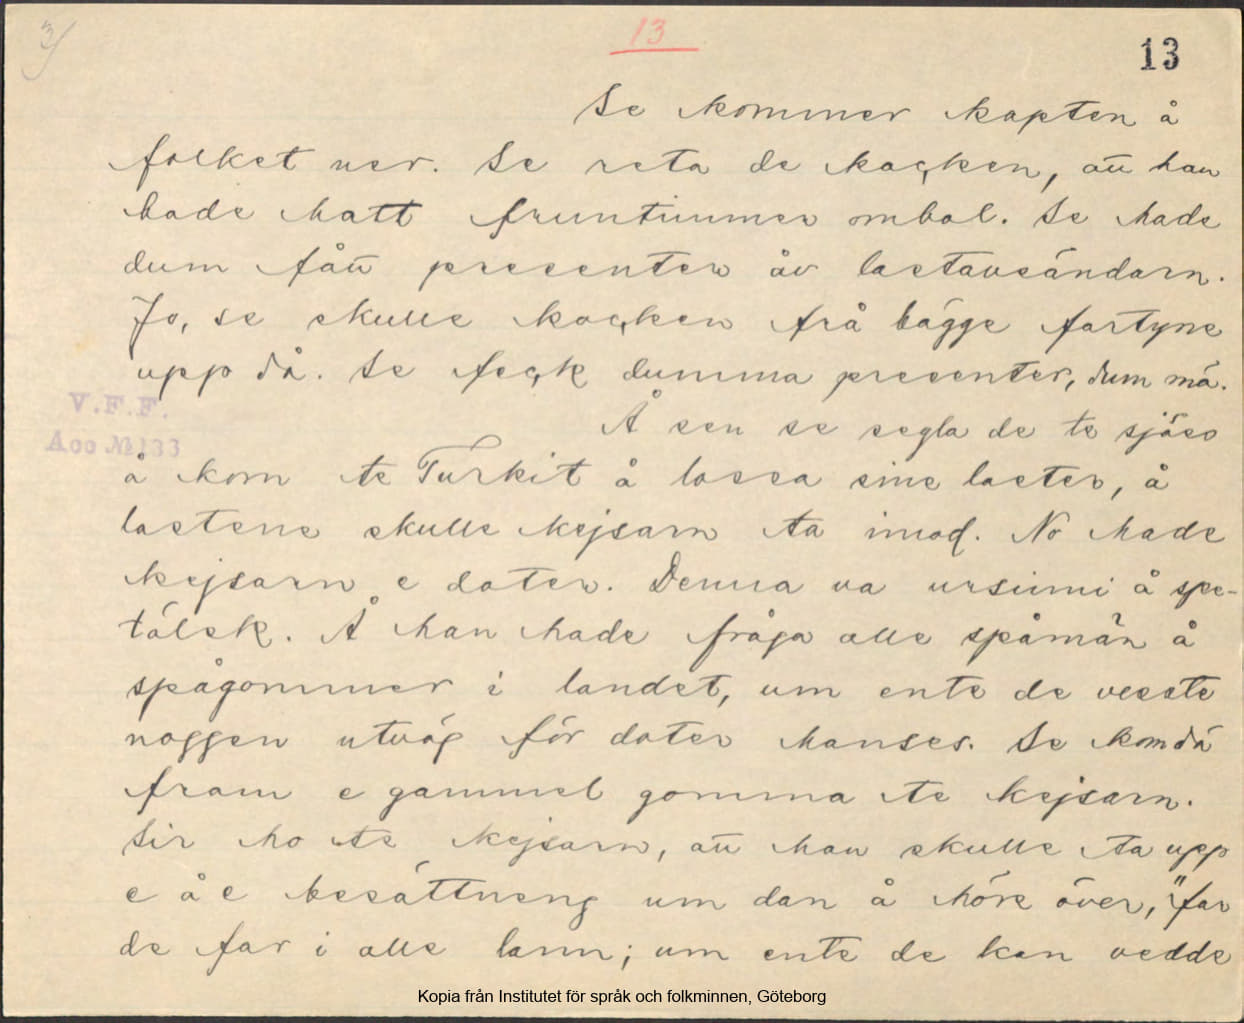 3/
13
13
Se kommer kapten å
folket ner. Se reta de kocken, att han
hade hatt fruntimmer ombol. Se hade
dum fått presenter åv lastavsändarn.
Jo, se skulle kocken frå bägge fartyne
upp då. Se feck dumma presenter, dum mä.
V.F.F.
Acc № 133
Å sen se segla de te sjöss
å kom te Turkit å lossa sine laster, å
lastene skulle kejsarn ta imod. No hade
kejsarn e doter. Denna va ursinni å spe-
tälsk. Å han hade fråga alle spåmän å
spågommer i landet, um ente de vesste
noggen utväg för doter hanses. Se kom dä
fram e gammel gomma te kejsarn.
Sir ho te kejsarn, att han skulle ta upp
e å e besättneng um dan å höre över, "far
de far i alle lann; um ente de kan vedde
Kopia från Institutet för språk och folkminnen, Göteborg